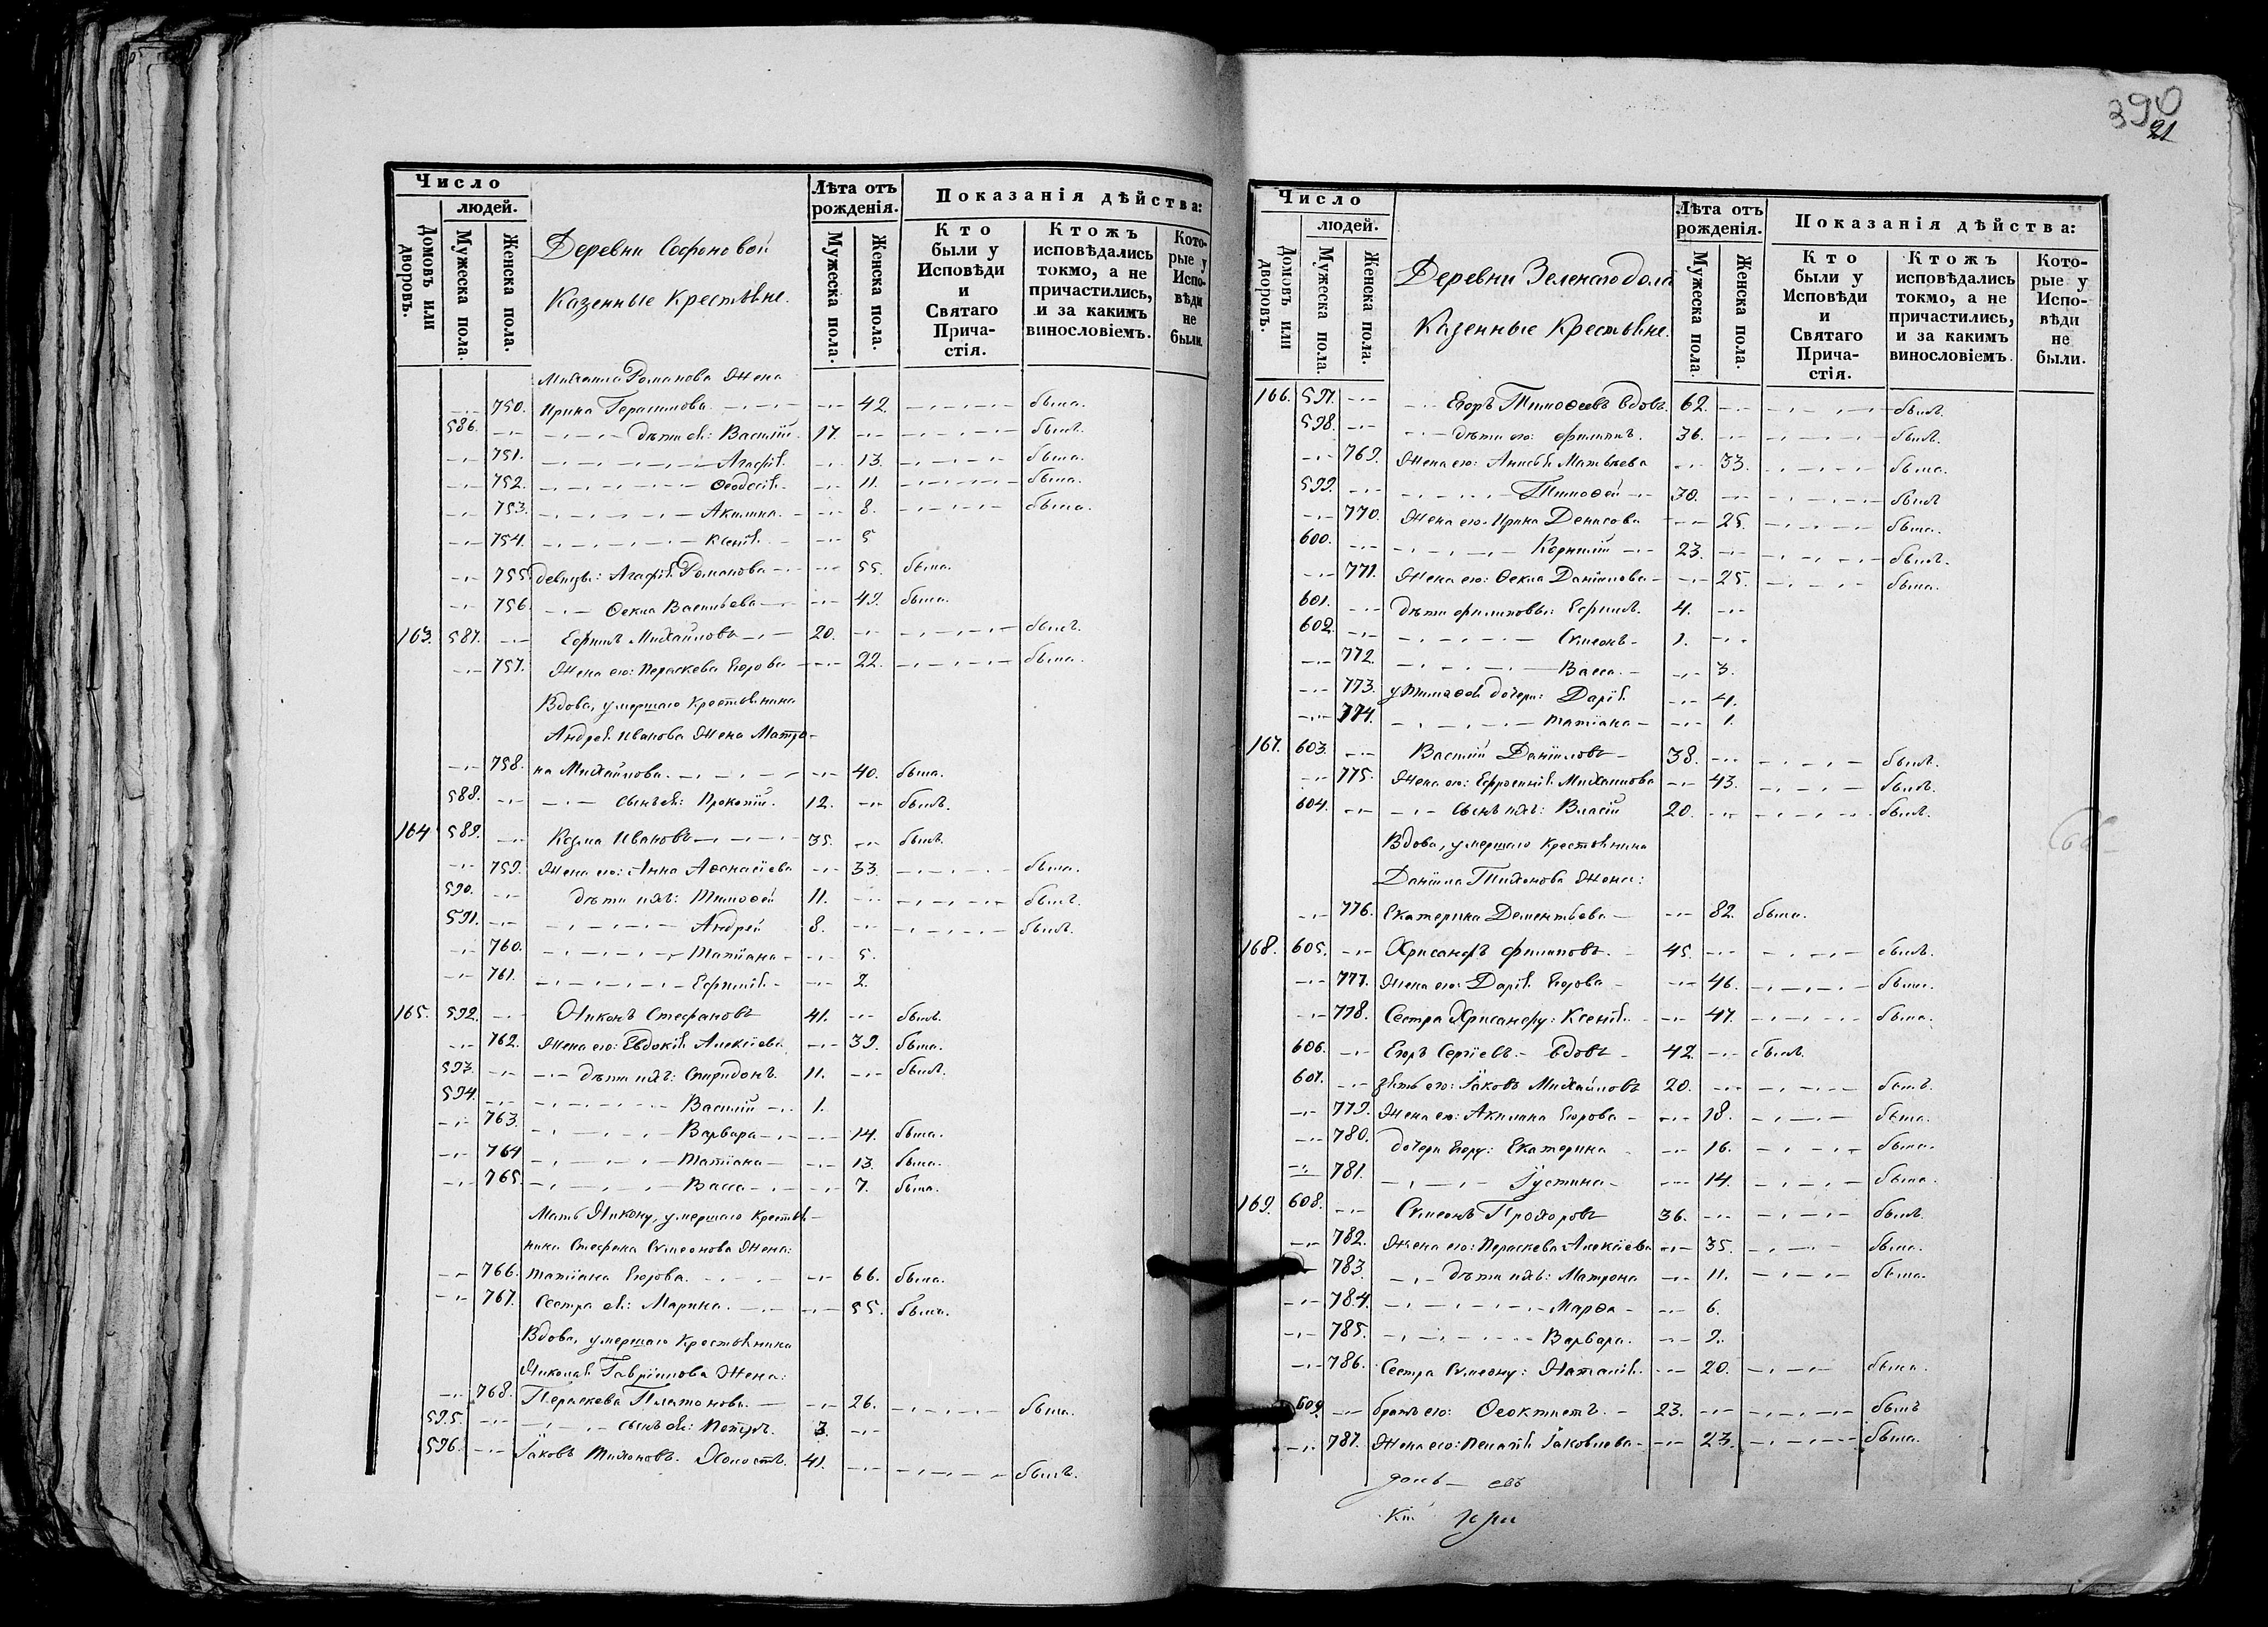 390
21
Число
людей.
Домовъ или дворовъ.
Мужеска пола.
Женска пола.
Деревни Софоновой
Казенные Крестьяне.
Лѣта отъ рожденія.
Мужеска пола.
Женска пола.
Показанія дѣйства:
Кто были у Исповѣди и Святаго Прича-стія.
Ктожъ исповѣдались токмо, а не причастились, и за какимъ винословіемъ.
Кото-рые у Испо-вѣди не были.
Михаила Романова Жена
750. Ирина Герасимова 42. была.
586. дѣти ея: Василій 17. былъ.
751. Агафія 13. была.
752. Феодосія 11. была.
753. Акилина 8. была.
754. Ксенія 5
755. девицы: Агафія Романова 55. была.
756. Фекла Васильева 49. была.
163. 587. Ефимъ Михайловъ 20. былъ.
757. Жена его: Параскева Егорова 22. была.
Вдова, умершаго Крестьянина
Андрея Иванова Жена Матро-
758. на Михайлова. 40. была.
588. сынъ ея: Прокопій. 12. былъ.
164 589. Козма Ивановъ 35. былъ.
759. Жена его: Анна Афанасіева 33. была.
590. дѣти ихъ: Тимофей 11. былъ.
591. Андрей 8. былъ.
760. Татіана 5.
761. Ефимія 2.
165. 592. Никонъ Стефановъ 41. былъ.
762. Жена его: Евдокія Алексіева 39. была.
593. дѣти ихъ: Спиридонъ. 11. былъ.
594. Василій 1.
763. Варвара 14. была.
764 Татіана 13. была.
765. Васса 7. была.
Мать Никону, умершаго Крестья-
нина Стефана Симеонова Жена:
766. Татіана Егорова. 66. была.
767. Сестра ея: Марина. 55. была.
Вдова, умершаго Крестьянина
Николая Гавріилова Жена:
768. Параскева Платонова. 26. была.
595. сынъ ея: Петръ. 3.
596. Іаковъ Тихоновъ. Холостъ. 41. былъ.
Число
людей.
Домовъ или дворовъ.
Мужеска пола.
Женска пола.
Деревни Зеленагодола
Казенные Крестьяне.
Лѣта отъ рожденія.
Мужеска пола.
Женска пола.
Показанія дѣйства:
Кто были у Исповѣди и Святаго Прича-стія.
Ктожъ исповѣдались токмо, а не причастились, и за какимъ винословіемъ.
Кото-рые у Испо-вѣди не были.
166. 597. Егоръ Тимофеевъ вдовъ. 62. былъ.
598. дѣти его: Филиппъ. 36. былъ.
769. Жена его: Анисія Матвѣева 33. была.
599. Тимофей 30. былъ
770. Жена его: Ирина Денисова 25. была.
600. Корнилій 23. былъ.
771. Жена его: Фекла Даніилова 25. была.
601. дѣти Филиповы: Ефимъ. 4.
602. Симеонъ 1.
772. Васса. 3.
773. у Тимофея дочери: Дарія. 4.
774. Татіана 1.
167. 603. Василій Даніиловъ 38. былъ.
775. Жена его: Ефросинія Михаилова 43. былъ.
604. сынъ ихъ: Власій 20. былъ.
Вдова, умершаго Крестьянина
Даніила Тихонова Жена:
776. Екатерина Дементьева 82. была.
168. 605. Хрисанфъ Филиповъ. 45. былъ.
777. Жена его: Дарія Егорова 46. была.
778. Сестра Хрисанфу: Ксенія. 47. была.
606. Егоръ Сергіевъ. вдовъ 42. былъ.
607. зять его: Іаковъ Михайловъ 20. былъ.
779. Жена его: Акилина Егорова 18. была.
780. дочери Егору: Екатерина 16. была.
781. Іустина 14. была.
169. 608. Симеонъ Прохоровъ 36. былъ.
782. Жена его: Параскева Алексіева 35. была.
783. дѣти ихъ: Матрона 11. была.
784. Марфа 6.
785. Варвара. 2.
786. Сестра Симеону: Наталія. 20. была.
609. братъ его: Феоктистъ. 23. былъ
787. Жена его: Пелагія Іаковлева 23. была.